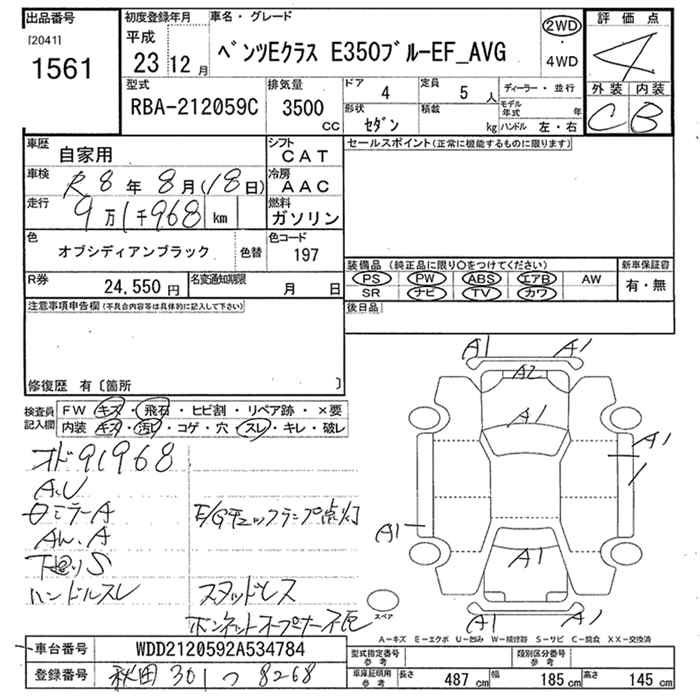 出品番号 初度登録年月 車名・グレード 評価点
[2041] 平成 ベンツEクラス E350ブルーEF_AVG 2WD ・ 4WD 4
1561 23 12月
型式 排気量 ドア 4 定員 5 人 ディーラー・並行 外装 内装
RBA-212059C 3500 cc 形状 セダン 積載 kg モデル年式 年 C B
ハンドル 左・右
車歴 自家用 シフト CAT セールスポイント(正常に機能するものに限ります)
車検 R8年8月(18日) 冷房 AAC
走行 9万1千968 km 燃料 ガソリン
色 オブシディアンブラック 色替 色コード 197
装備品 (純正品に限り○をつけてください) 新車保証書
R券 24,550円 名変通知期限 月 日 PS PW ABS エアB AW 有・無
SR ナビ TV カワ
注意事項申告欄(不具合内容等は具体的に記入して下さい) 後日品
修復歴 有〔箇所 〕
検査員記入欄 FW キズ・飛石・ヒビ割・リペア跡・×要
内装 キズ・汚レ・コゲ・穴・スレ・キレ・破レ
A1 A1
A2
A1
A1
A1
A1
A1 A1
オド91968
A.U
ミラーA E/Gチェックランプ点灯
AW.A
下回りS
ハンドルスレ スタッドレス
ボンネットオープナー不良
スペア
A-キズ E-エクボ U-凹み W-補修跡 S-サビ C-腐食 XX-交換済
車台番号 WDD2120592A534784
登録番号 秋田 301 つ 8268
型式指定番号 参考 類別区分番号 参考
車庫証明用 参考 長さ 487cm 幅 185cm 高さ 145cm